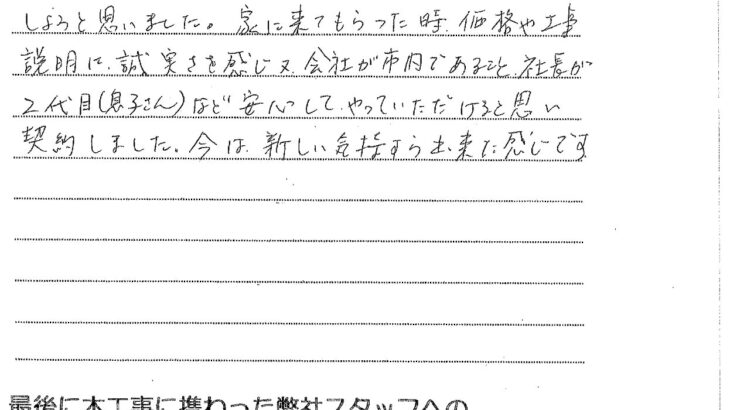 しようと思いました。家に来てもらった時、価格や工事
説明に、誠実さを感じ又、会社が市内であること、社長が
2代目(息子さん)など安心して、やっていただけると思い
契約しました。今は、新しい気持すら出来た感じです
最後に本工事に携わった弊社スタッフへの